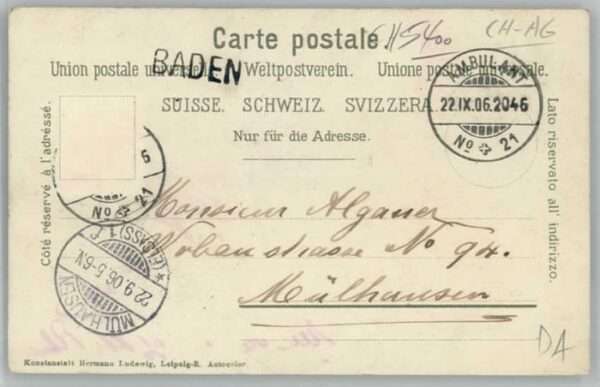 Carte postale.
H5400
CH-AG
BADEN
Union postale universelle. Weltpostverein. Unione postale
SUISSE. SCHWEIZ. SVIZZERA.
Nur für die Adresse.
AMBULANT
22.IX.06.2046
No 21
6
No 21
Côté réservé à l'adrésse.
Lato riservato all' indirizzo.
Monsieur
No 94.
Mülhausen
MÜLHAUSEN
(ELSASS)
22.9.06.5-6V.
DA
Kunstanstalt Hermann Ludewig, Leipzig-R. Autocolor.